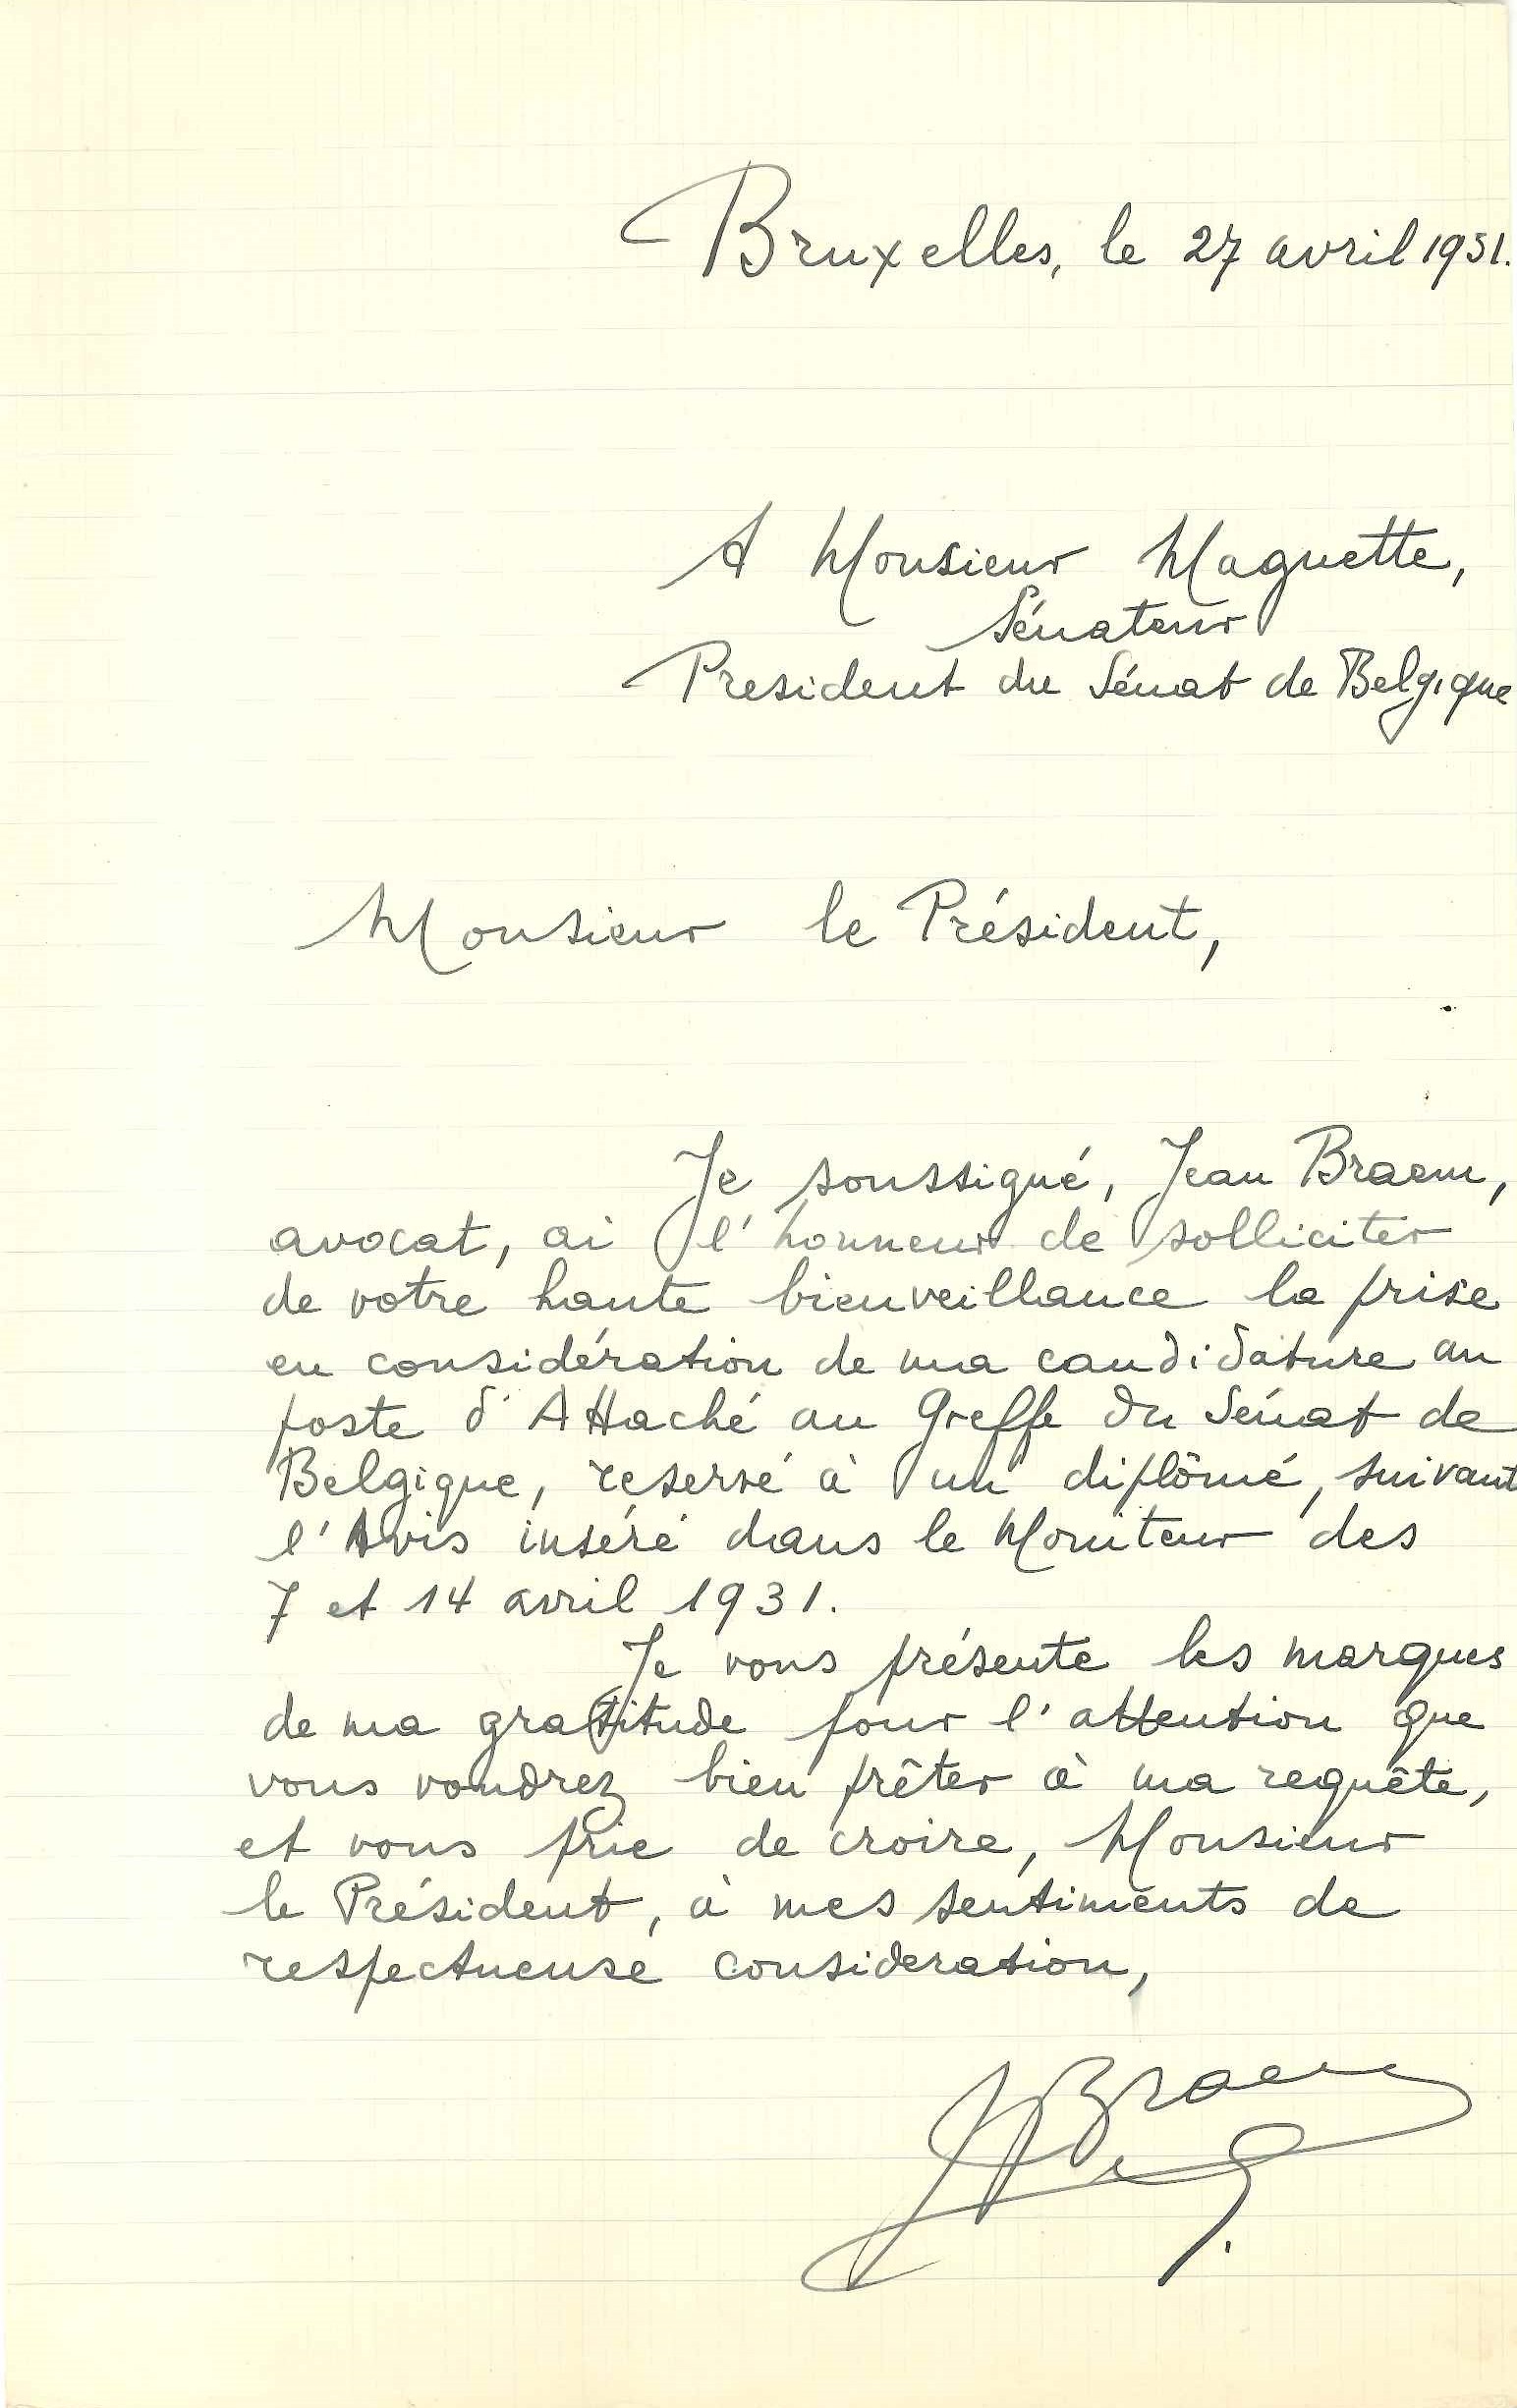 Bruxelles, le 27 avril 1931.
A Monsieur Magnette,
Sénateur
President du Sénat de Belgique
Monsieur le Président,
Je soussigné, Jean Braem,
avocat, ai l'honneur de solliciter
de votre haute bienveillance la prise
en considération de ma candidature au
poste d'Attaché au Greffe du Sénat de
Belgique, reservé à un diplômé, suivant
l'Avis inséré dans le Moniteur des
7 et 14 avril 1931.
Je vous présente les marques
de ma gratitude pour l'attention que
vous voudrez bien prêter à ma requête,
et vous prie de croire, Monsieur
le Président, à mes sentiments de
respectueuse consideration,
JBraem